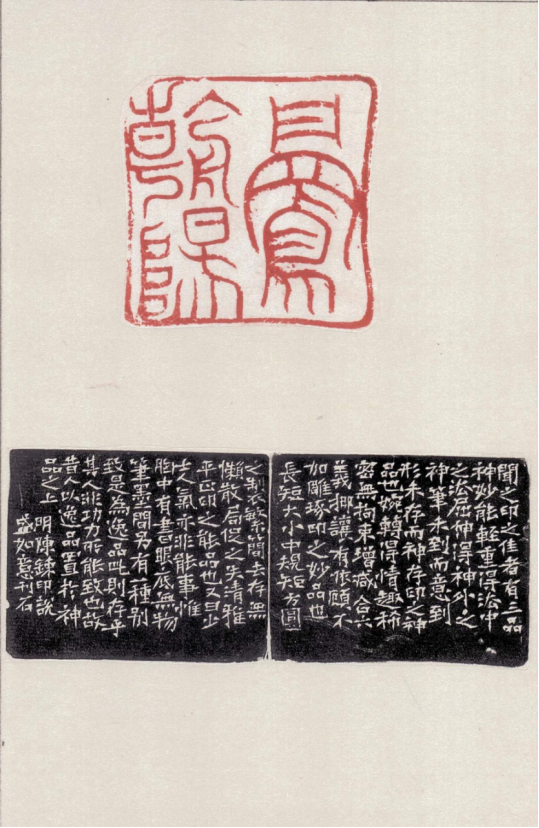 聞之印之佳者有三品
神妙能輕重得法中
之法屈神得神外之
神筆未到而意到
形未存而神存印之神
品也婉轉得情趣稀
密無拘束增減合六
義挪讓有依顧不
加雕琢印之妙品也
長短大小中規矩方圓
之制衷繁簡去存無
懶散局促之失清雅
平正印之能品也又曰少
士人氣亦非能事惟
胸中有書眼底無物
筆墨間另有一種別
致是為逸品此則存乎
其人非功力所能致也故
昔人以逸品置於神
品之上 明陳鍊印說
盛如意刊石